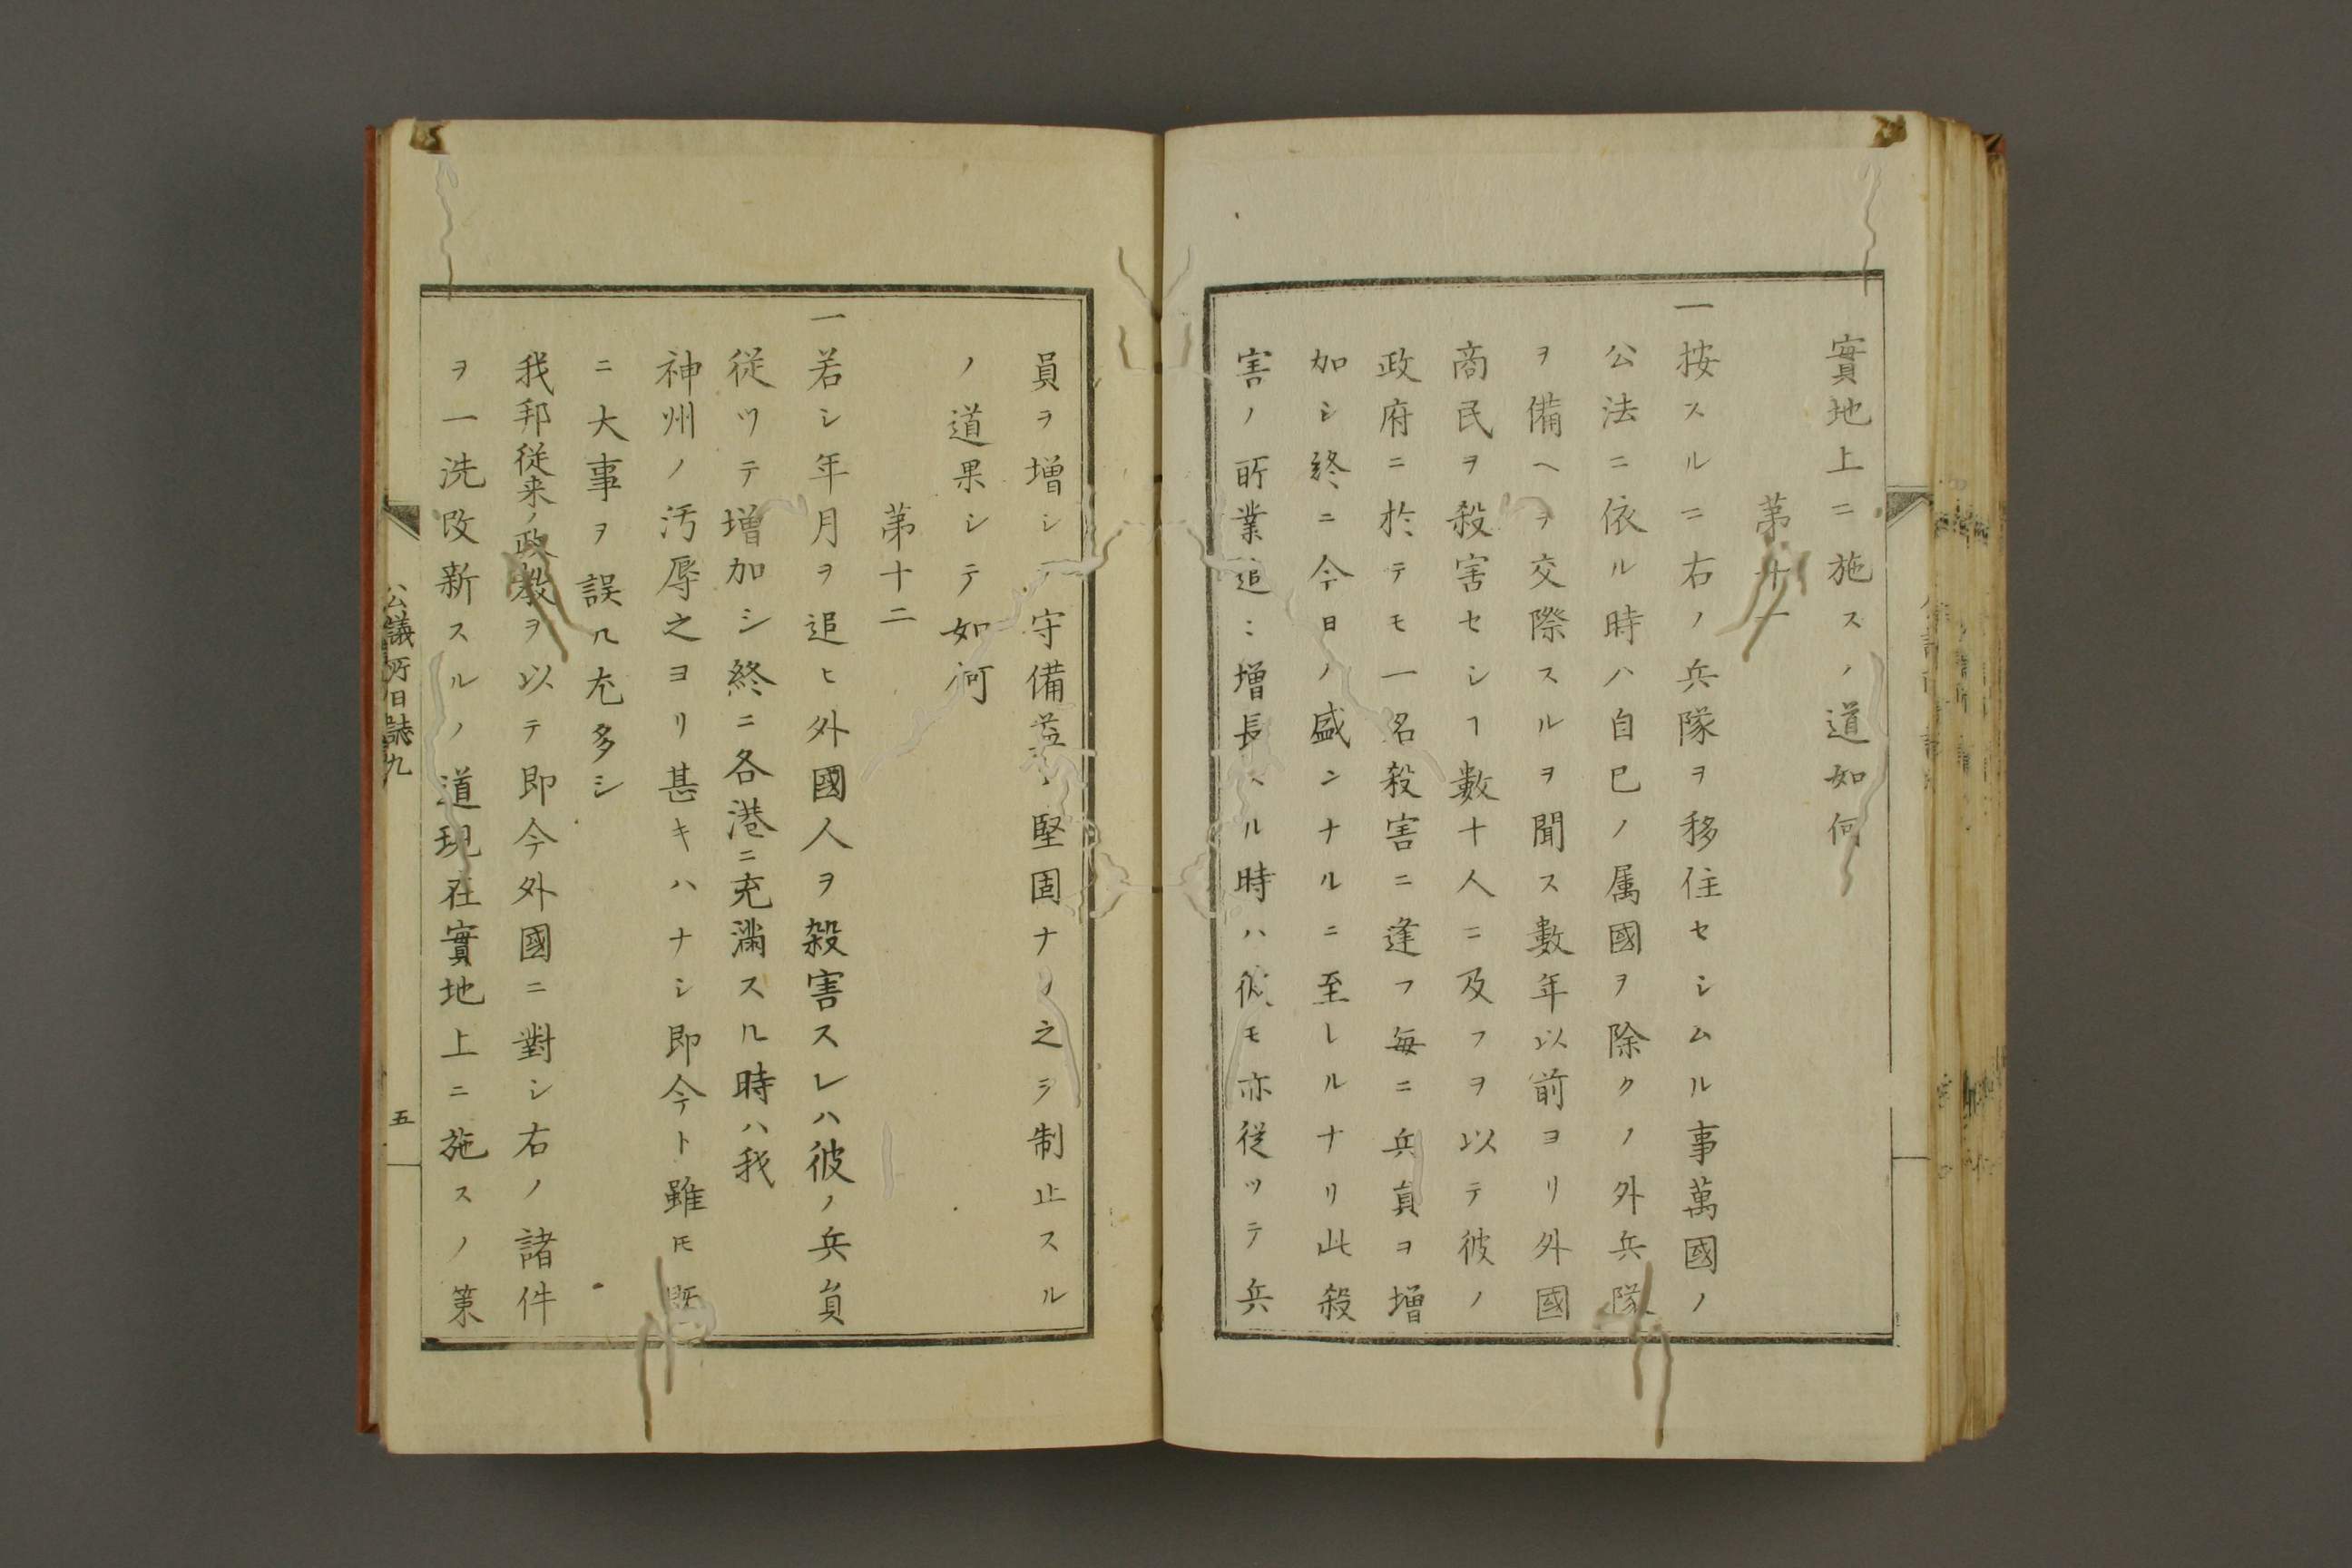 實地上ニ施スノ道如何
第十一
一按スルニ右ノ兵隊ヲ移住セシムル事萬國ノ
公法ニ依ル時ハ自已ノ属國ヲ除クノ外兵隊
ヲ備ヘテ交際スルヲ聞ス數年以前ヨリ外國
商民ヲ殺害セシヿ數十人ニ及フヲ以テ彼ノ
政府ニ於テモ一名殺害ニ逢フ毎ニ兵員ヲ増
加シ終ニ今日ノ盛ンナルニ至レルナリ此殺
害ノ所業追〻増長スル時ハ彼モ亦従ツテ兵
員ヲ増シテ守備益〻堅固ナリ之ヲ制止スル
ノ道果シテ如何
第十二
一若シ年月ヲ追ヒ外國人ヲ殺害スレハ彼ノ兵員
従ツテ増加シ終ニ各港ニ充満スル時ハ我
神州ノ汚辱之ヨリ甚キハナシ即今ト雖𪜈既
ニ大事ヲ誤ル尤多シ
我邦従来ノ政教ヲ以テ即今外國ニ對シ右ノ諸件
ヲ一洗改新スルノ道現在實地上ニ施スノ策
公議所日誌九
五